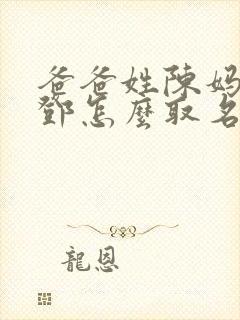 爸爸姓陳媽
鄧怎麼取名
龍恩